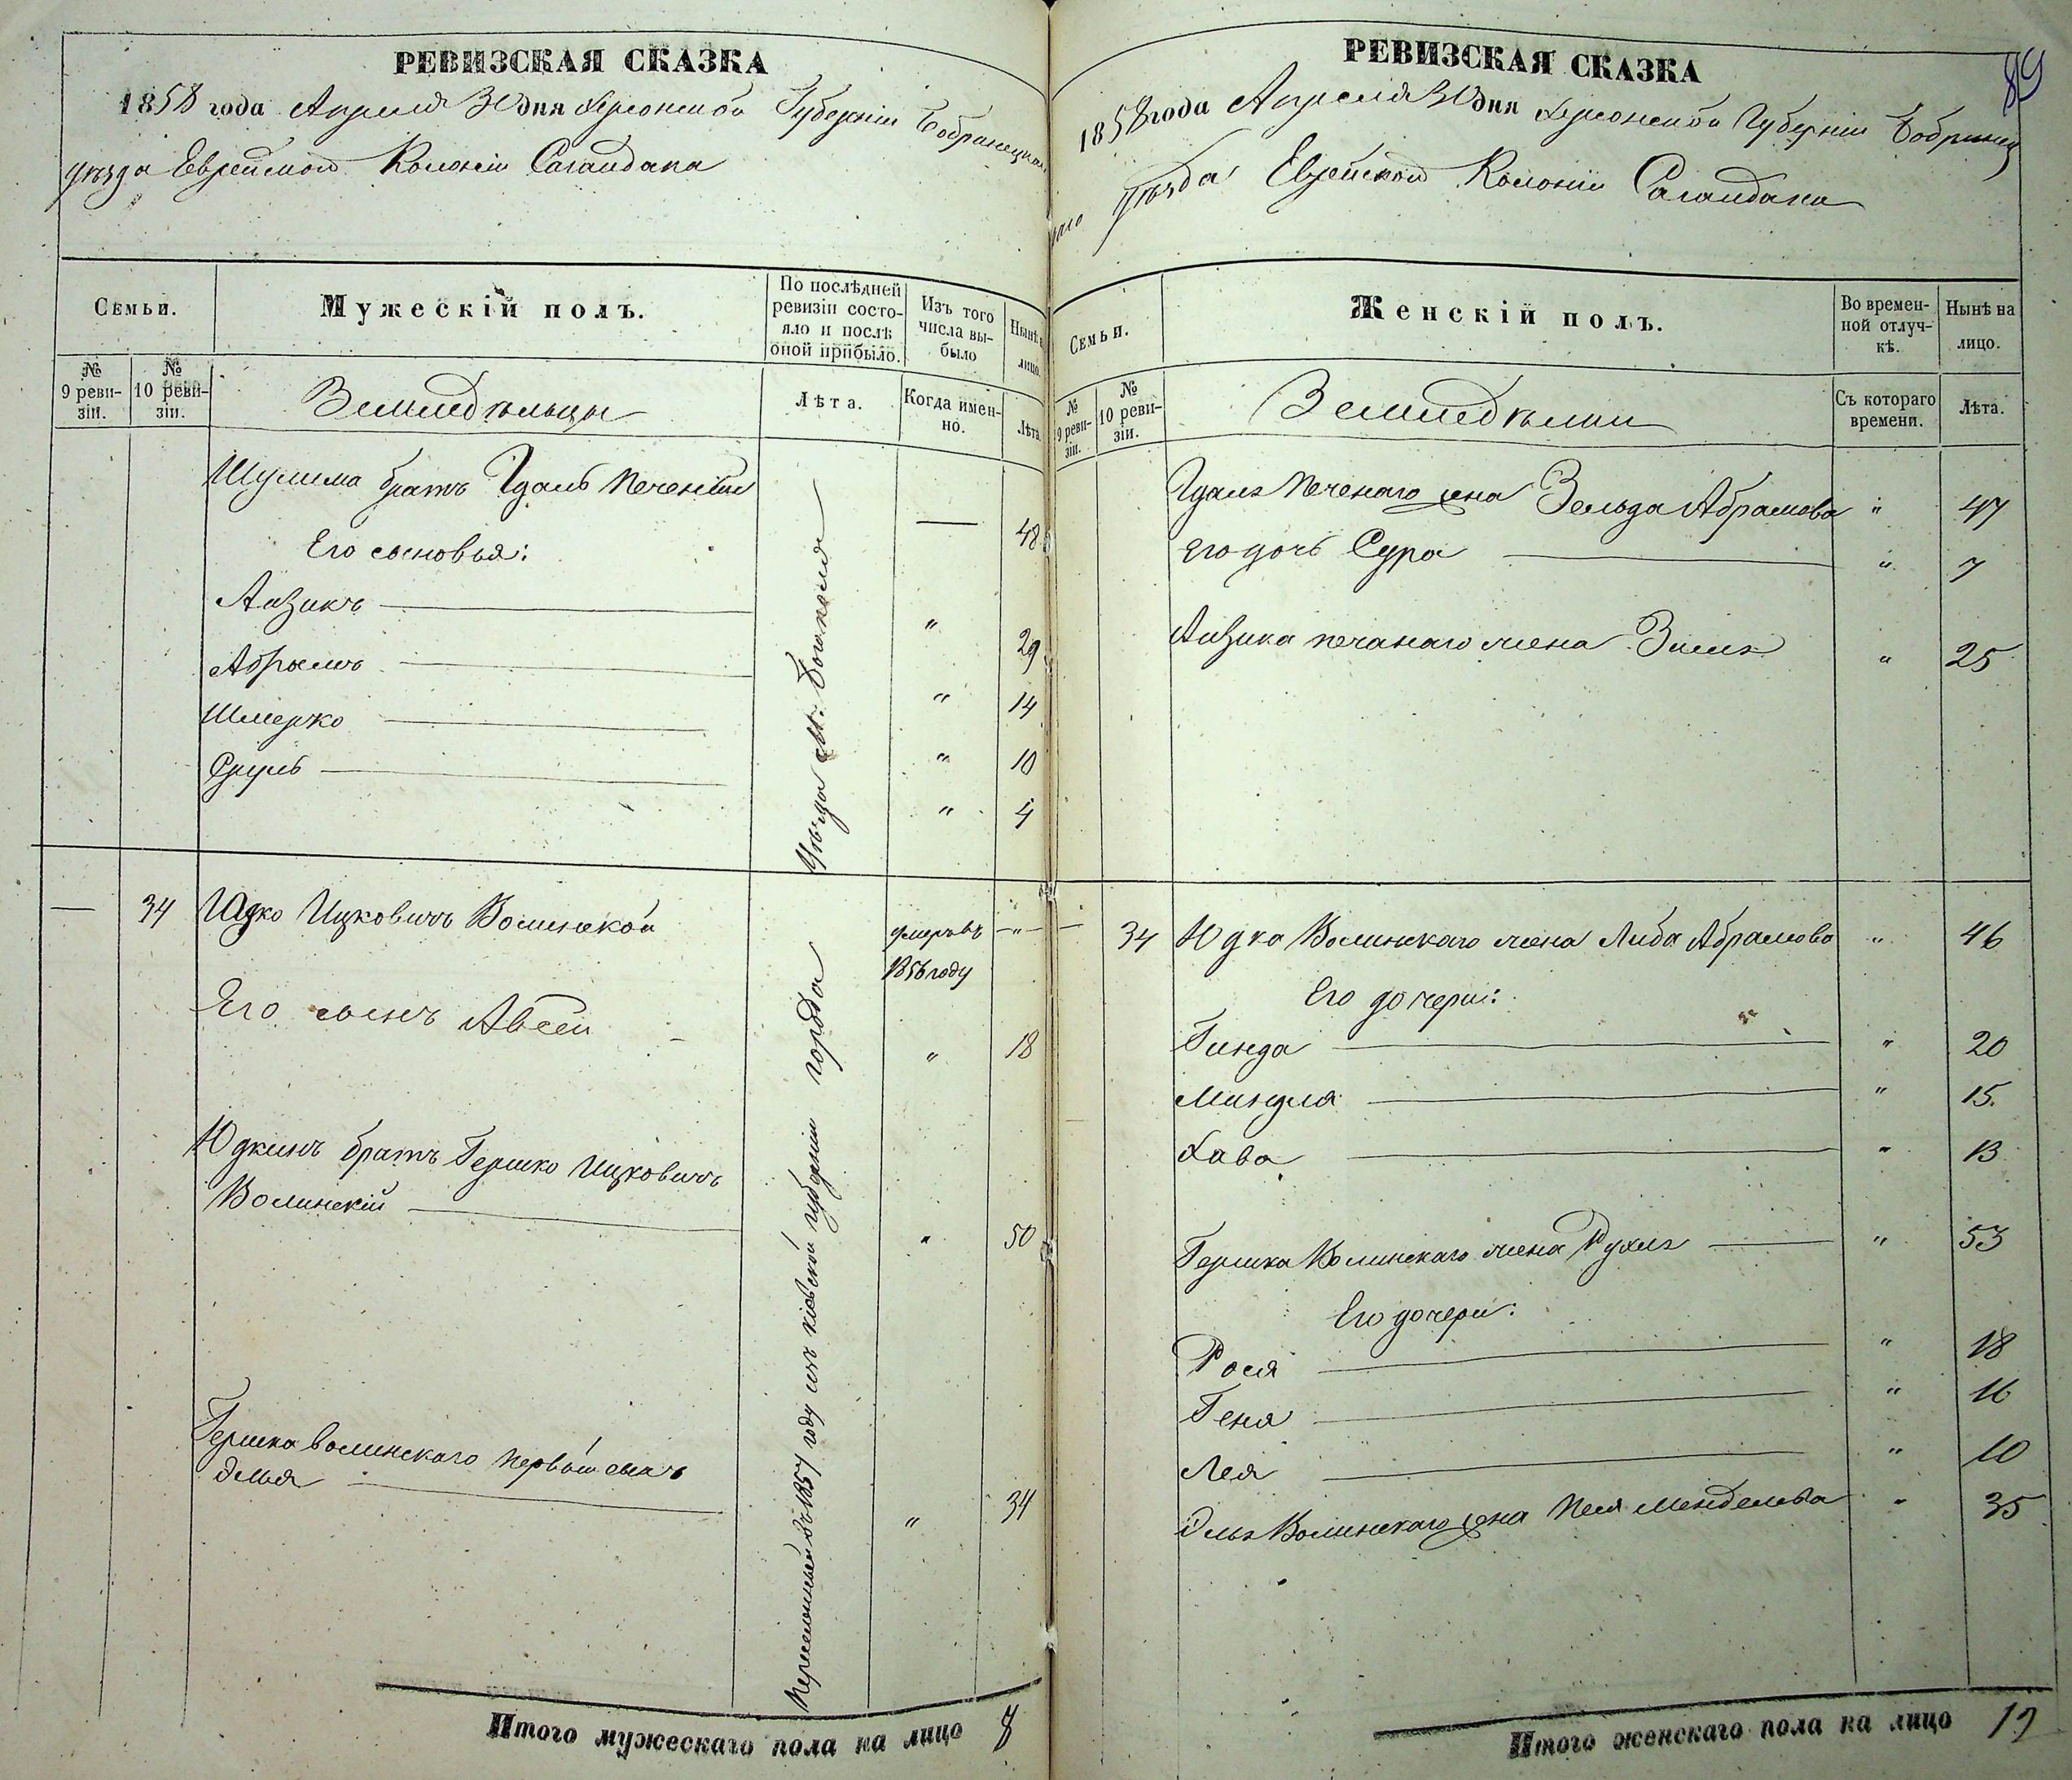 РЕВИЗСКАЯ СКАЗКА
1858 года Апреля 30 дня Херсонской Губерніи Бобринецкаго
уѣзда Еврейской Колоніи Сагайдака
Семьи.
Мужескій полъ.
По послѣдней ревизіи состояло и послѣ оной прибыло.
Изъ того числа выбыло
Нынѣ на лицо.
№ 9 ревизіи.
№ 10 ревизіи.
Земледѣльцы
Лѣта.
Когда именно.
Лѣта
Шулима братъ Гдаль Печеный — 48
Его сыновья:
Аизикъ " 29
Абрамъ " 14
Шмерко " 10
Сруль " 4
уѣзда м. Богополя
— 34 Юдко Ицковичъ Волинской умеръ въ — " —
1856 году
Его сынъ Авсей " 18
Юдкинъ братъ Гершко Ицковичъ
Волинскій " 50
Гершка Волинскаго первый сынъ
Элья " 34
Переселенный въ 1857 году изъ кіевской губерніи города
Итого мужескаго пола на лицо 8
89
РЕВИЗСКАЯ СКАЗКА
1858 года Апреля 30 дня Херсонской Губерніи Бобринец
каго Уѣзда Еврейской Колоніи Сагайдака
Семьи.
Женскій полъ.
Во временной отлучкѣ.
Нынѣ на лицо.
№ 9 ревизіи.
№ 10 ревизіи.
Земледѣльки
Съ котораго времени.
Лѣта.
Гдаля Печенаго жена Зельда Абрамова " 47
Его дочь Сура " 7
Аизика печанаго жена " 25
— 34 Юдка Волинскаго жена Либа Абрамова " 46
Его дочери:
Гинда " 20
Миндля " 15
Хава " 13
Гершка Волинскаго жена Рухля " 53
Его дочери:
Рося " 18
Геня " 16
Лея " 10
Эля Волинскаго жена Песя Менделева " 35
Итого женскаго пола на лицо 12